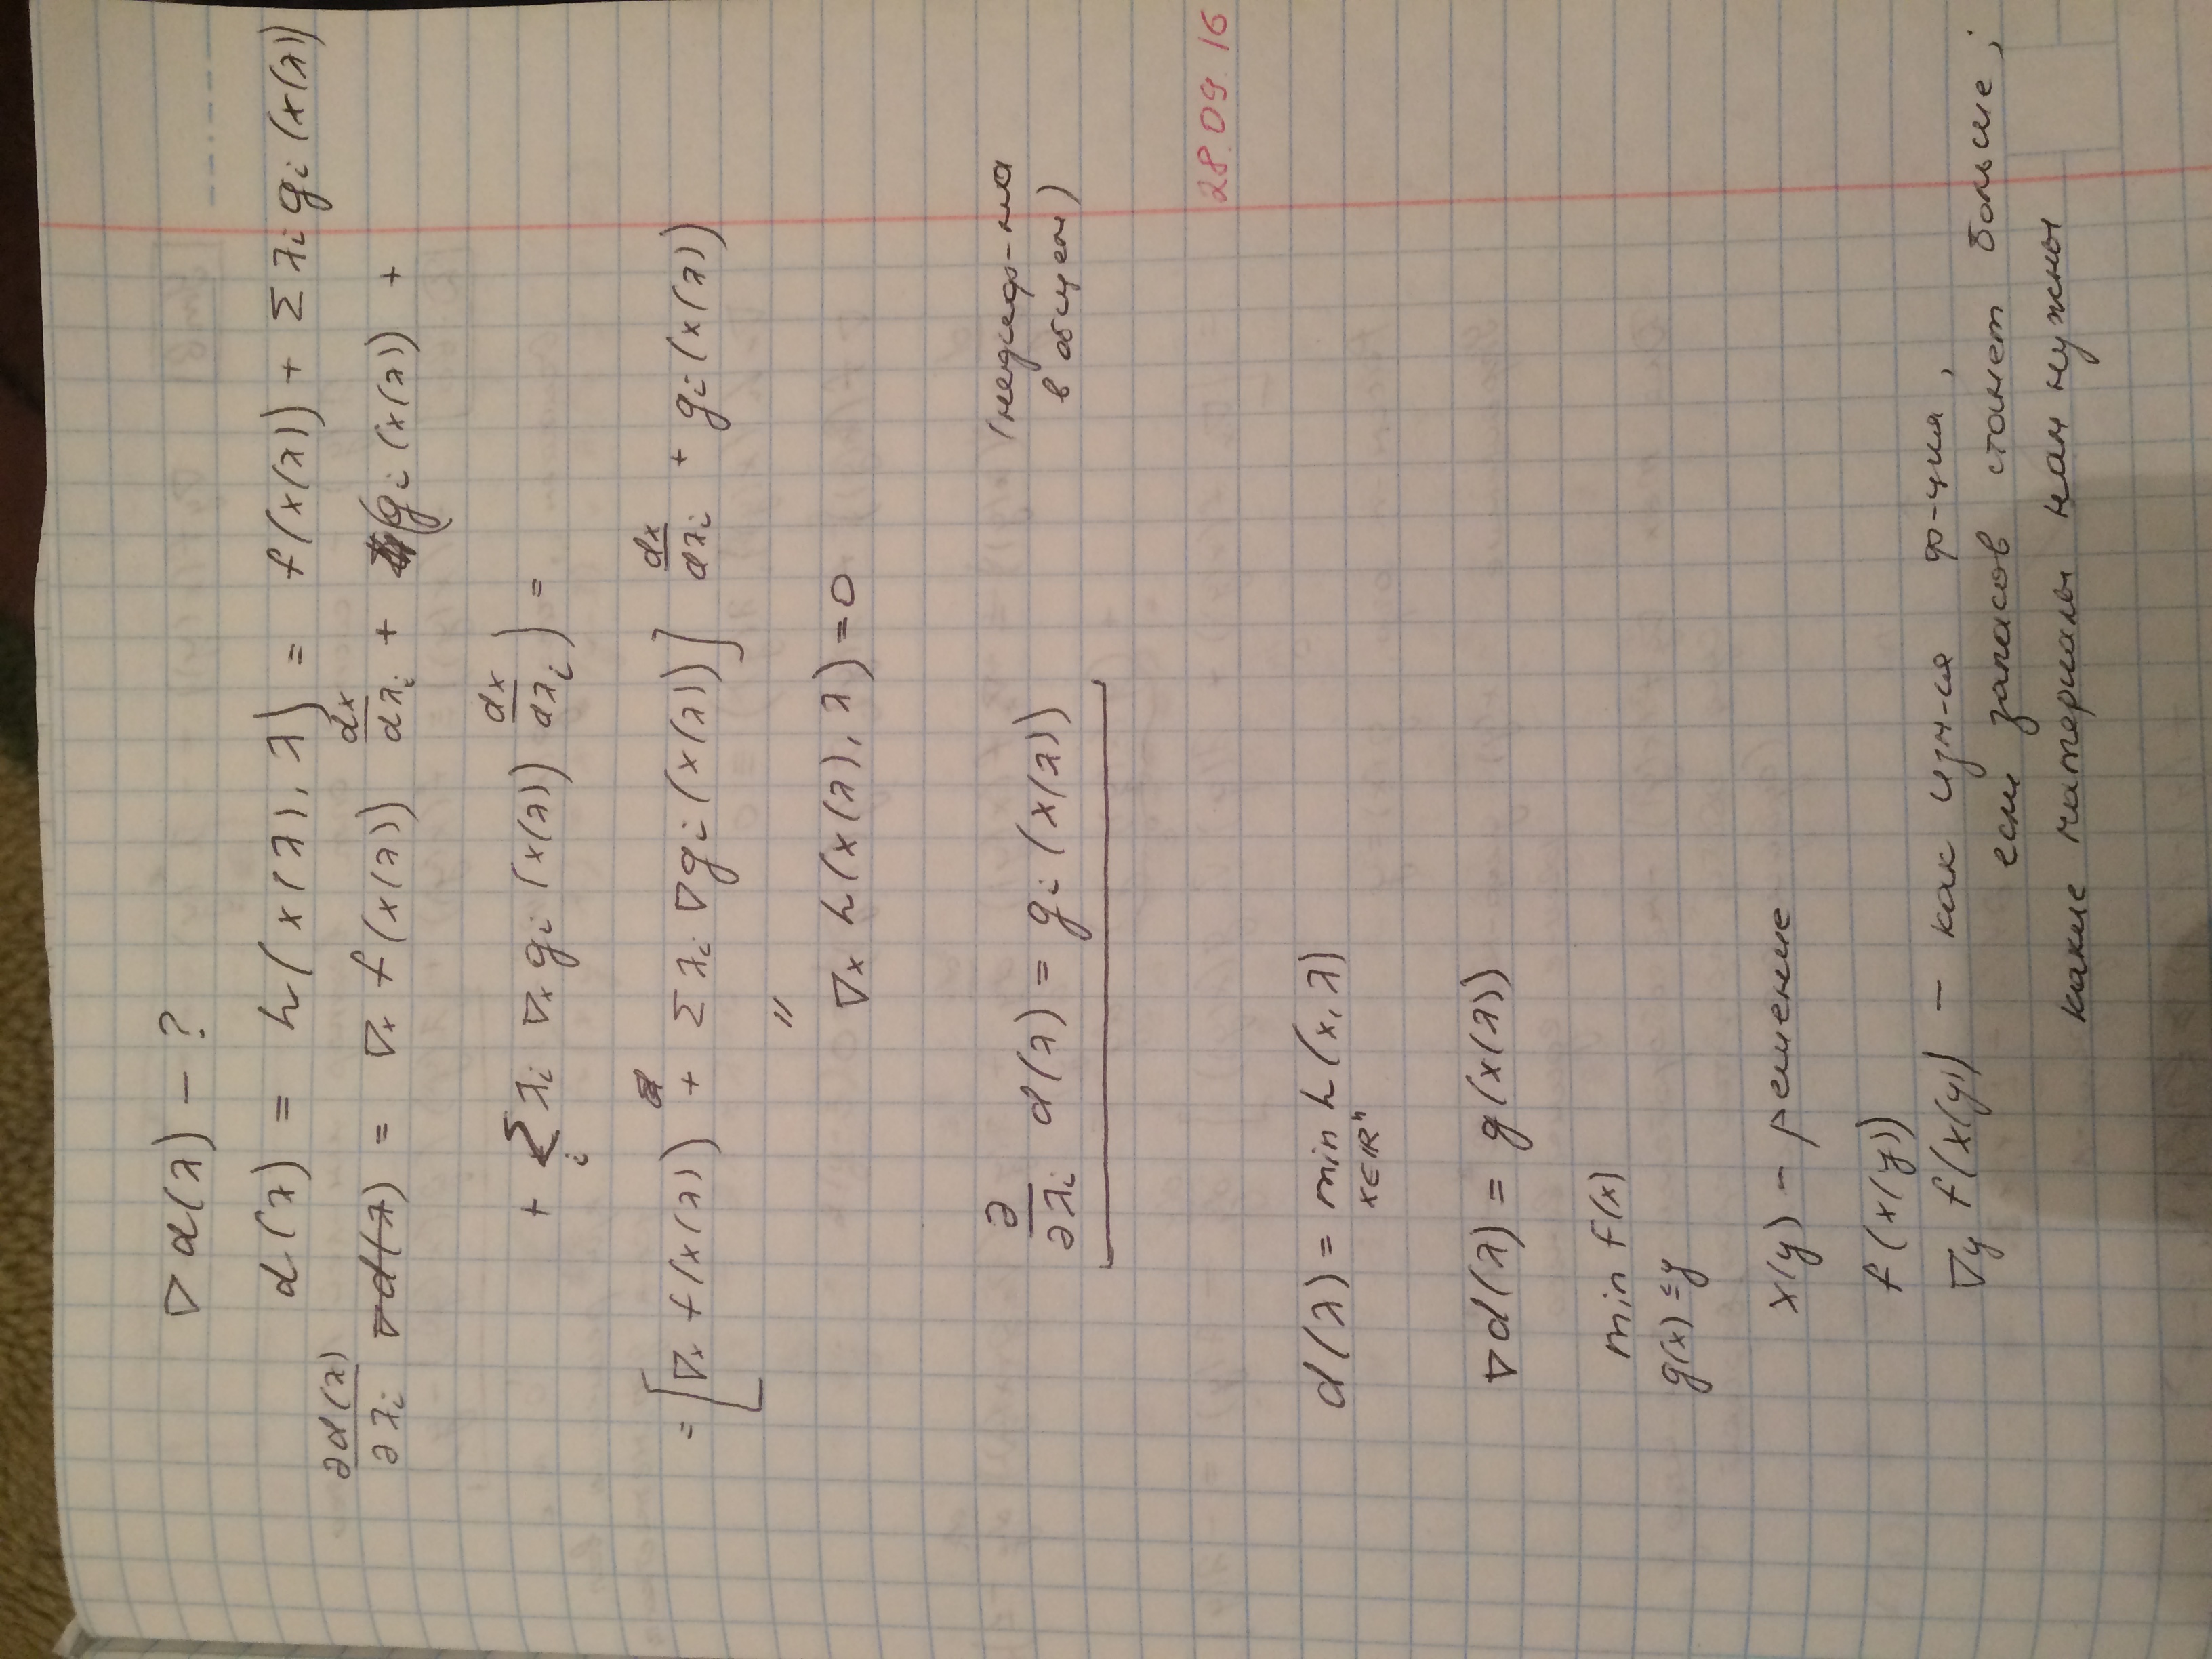 ∇d(λ) - ?
d(λ) = h(x(λ), λ) = f(x(λ)) + Σ λi gi(x(λ))
∂d(λ)/∂λi = ∇x f(x(λ)) dx/dλi + (gi(x(λ)) +
+ Σi λi ∇x gi(x(λ)) dx/dλi) =
= [∇x f(x(λ)) + Σ λi ∇gi(x(λ))] dx/dλi + gi(x(λ))
"
∇x h(x(λ), λ) = 0
∂/∂λi d(λ) = gi(x(λ)) (
в общем)
28.09.16
d(λ) = min h(x, λ)
x∈ℝⁿ
∇d(λ) = g(x(λ))
min f(x)
g(x) ≤ y
x(y) - решение
f(x(y))
∇y f(x(y)) - как изм-ся ф-ция,
если запасов станет больше;
какие материалы нам нужны